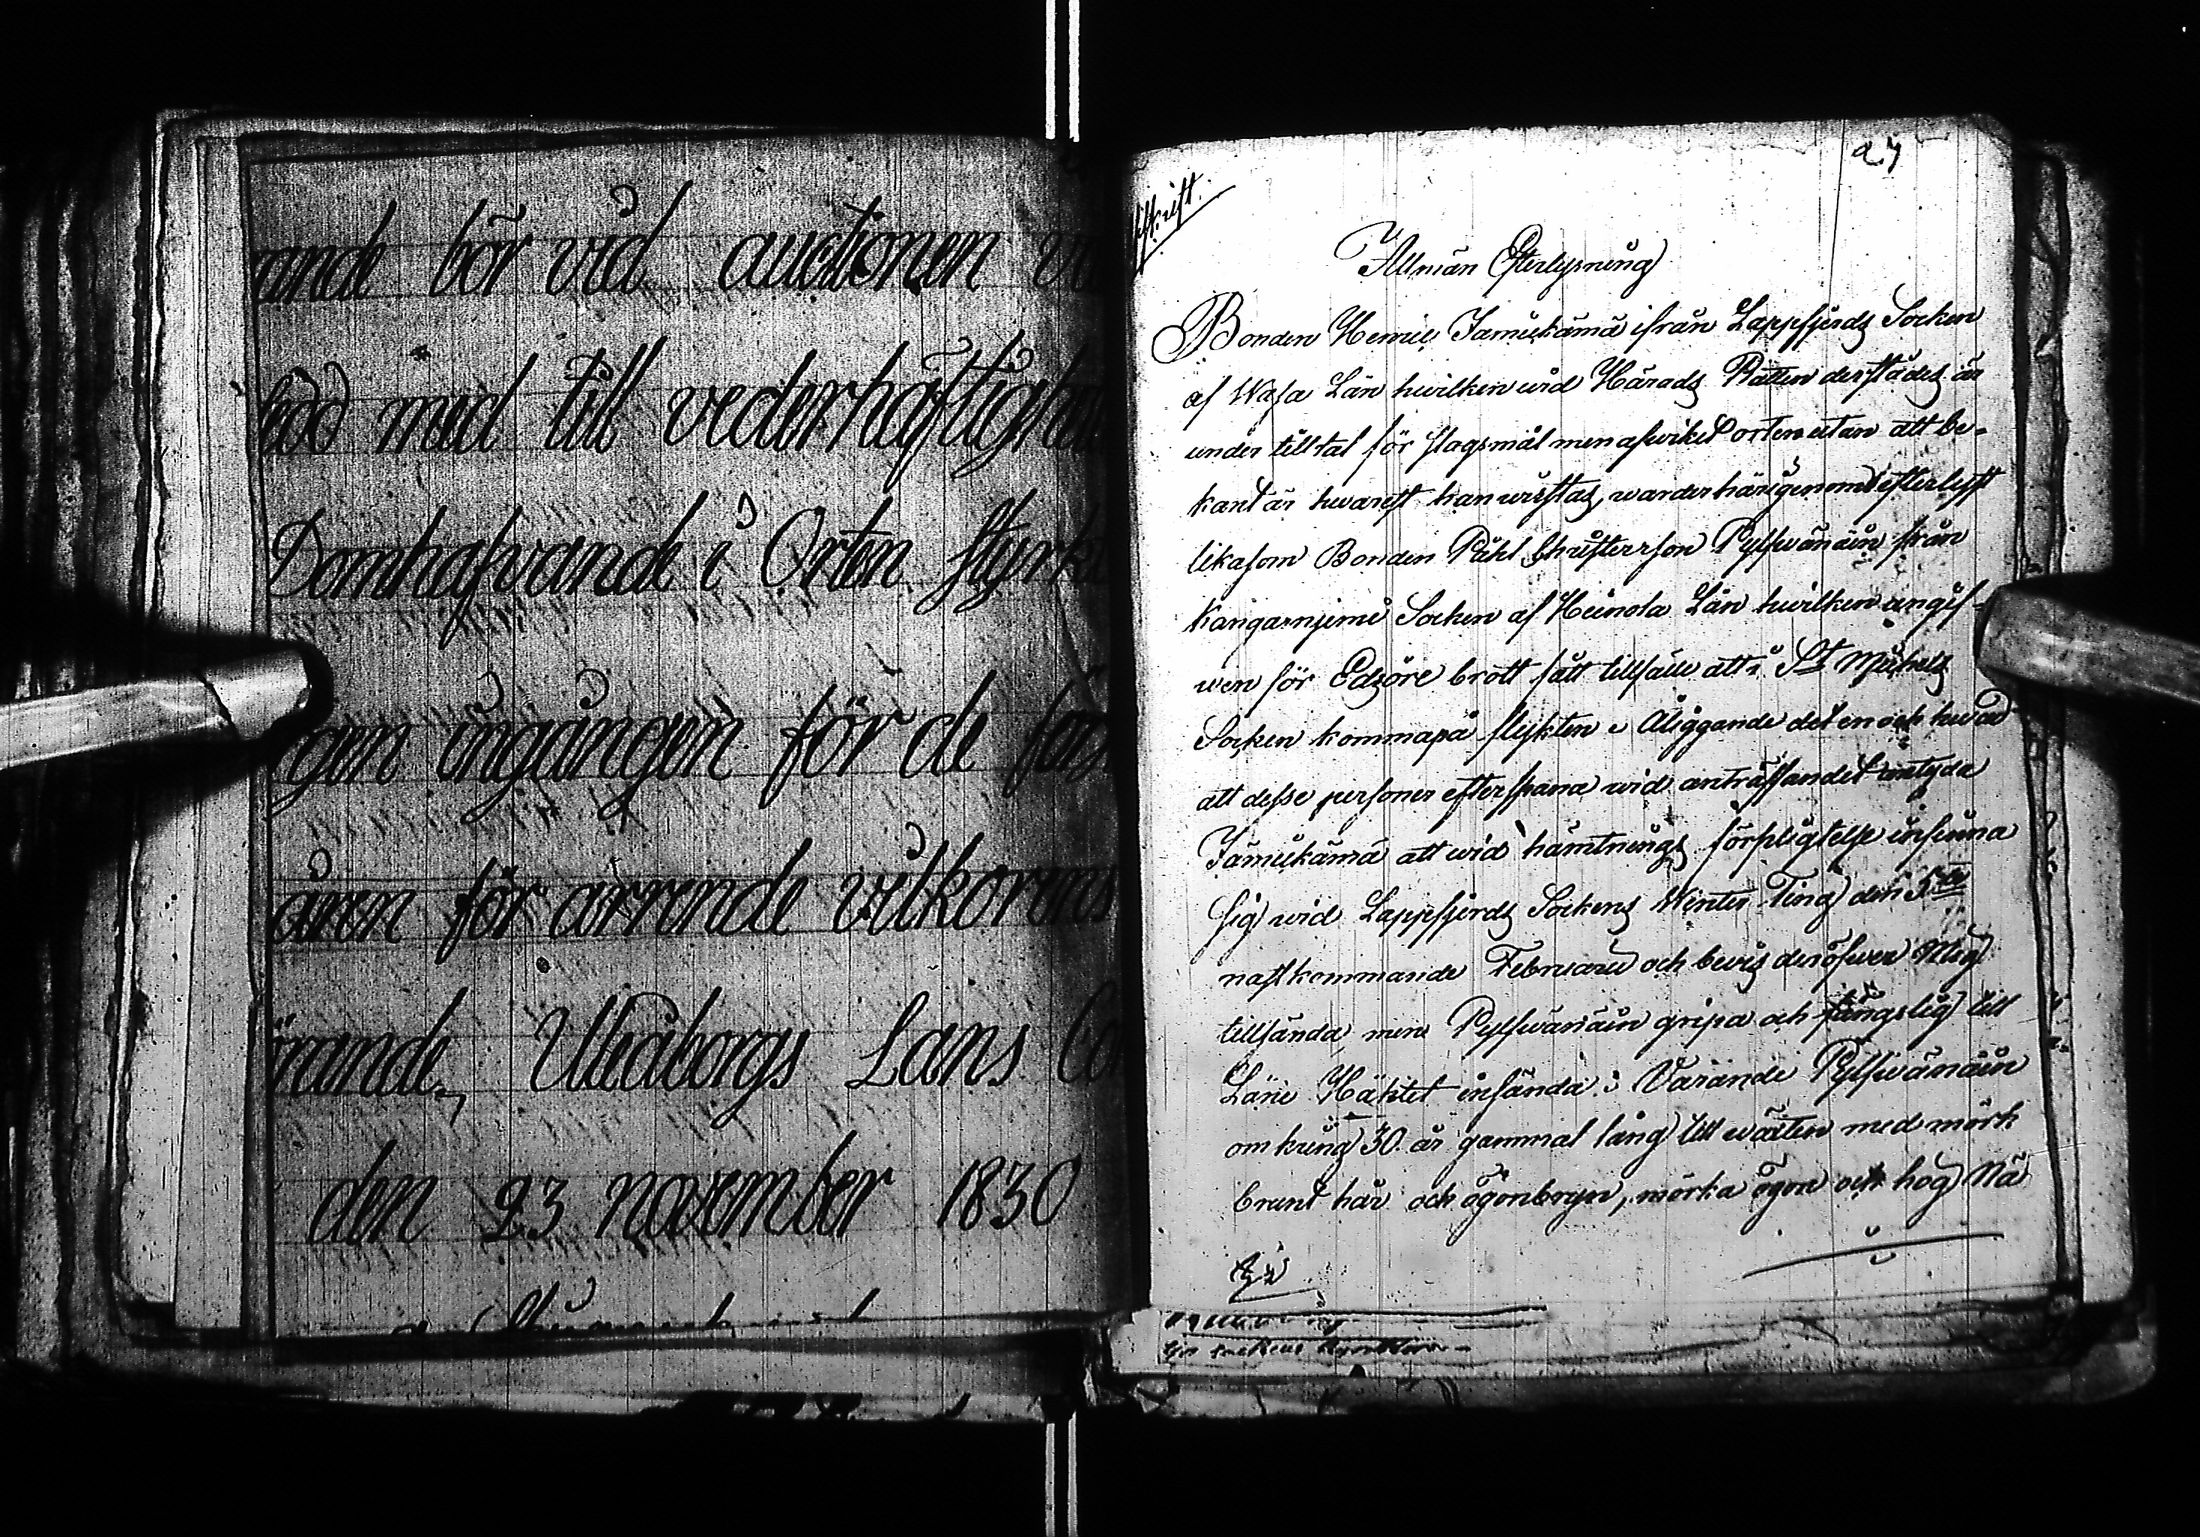 ande bör vid auctionen
med till vederhäftighe
Domhafvande i Orten styrk
gen ingången för de
åren för arrende vilkorens
rande, Uleåborgs Läns
den 23 november 1830
27
Afskrift.
Allmän Efterlysning
Bonden Henric Jamiekämä ifrån Lappfjerds Socken
af Wasa Län hvilken wid Härads Rätten derstädes är
under tilltal för slagsmål men afwiket orten utan att be-
kant är hwarest han wistas, warder härigenom efterlyst
likasom Bonden Påhl Christersson Pylswänäin från
Kangasnjemi Socken af Heinola Län hvilken angif-
wen för Edsöre brott fått tillfälle att i St Michels
Socken komma på flykten; Åliggande det en och hwar
att desse personer efterspana wid anträffandet antyda
Jamiekämä att wid hämtnings förpligtelse infinna
sig wid Lappfjerds Sockens Winter Ting den 5de
nästkommande Februarii och bevis deröfwer Mig
tillsända, men Pylswänäin gripa och fängslig till
Läne Häktet insända: Varande Pylswänäin
omkring 30 år gammal lång till wäxten med mörk
brunt hår och ögonbryn, mörka ögon och hög Nä